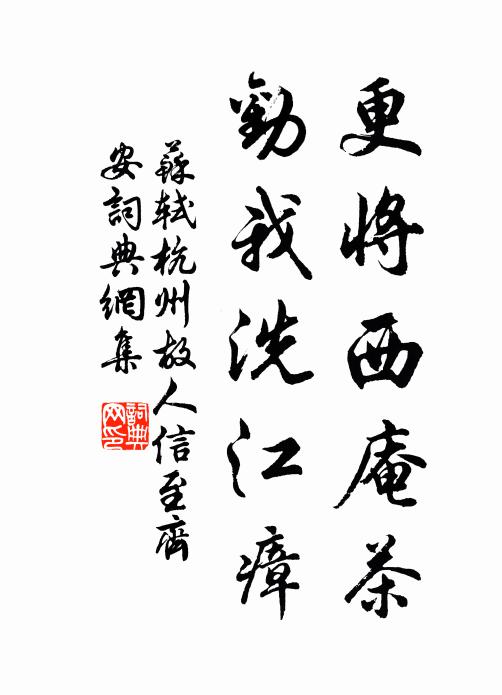 更將西庵茶
勸我洗江瘴
蘇軾杭州故人信至齊
安詞典網集
詞典
网印